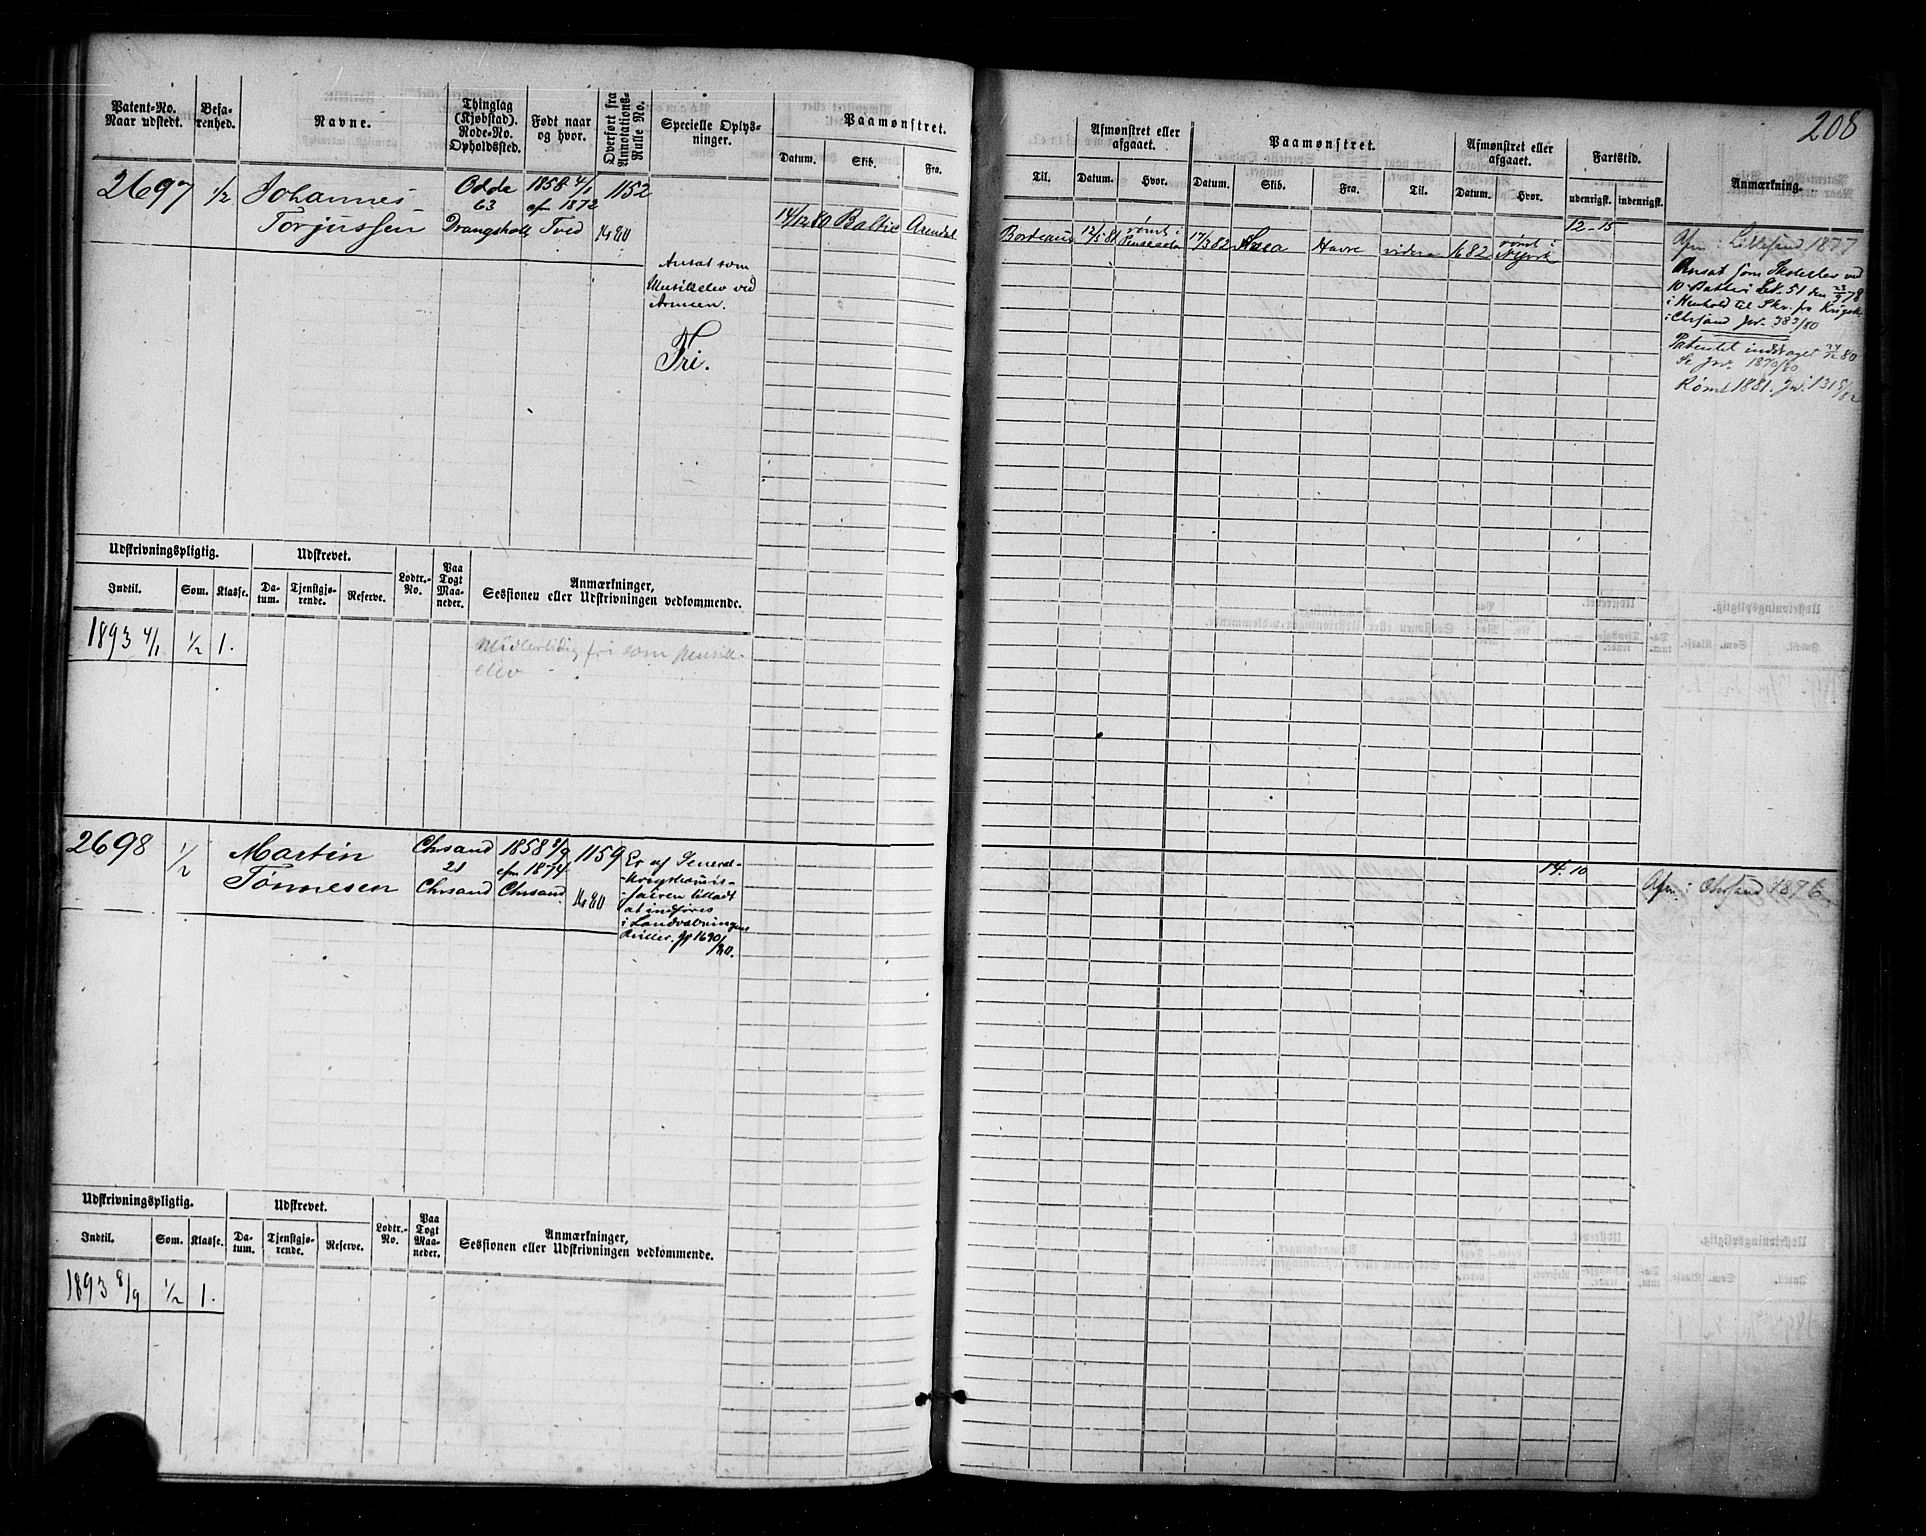 208
Patent-No. Naar udstedt.
Befarenhed.
Navne.
Thinglag (Kjøbstad). Rode-No. Opholdssted.
Født naar og hvor.
Overført fra Annotations-Rulle No.
Specielle Oplysninger.
Paamønstret.
Datum. Skib. Fra. Til.
Afmønstret eller afgaaet.
Datum. Hvor.
Paamønstret.
Datum. Skib. Fra. Til.
Afmønstret eller afgaaet.
Datum. Hvor.
Fartstid.
udenrigsk. indenrigsk.
Anmærkning.
2697 1/2 Johannes Torjussen
Odde 63 Drangsholt
1858 4/1 efm 1872 Tved
1152
1480
Ansat som
Musikelev ved
Armeen.
Fri.
14/12 80 Baltic Arendal Bordeaux 12/5 81 rømt i Pensacola 17/3 82 Havre videre 1682 rømt i NYork
12-15
Afm: Lillesand 1877
Ansat som Skoleelev ved
i Henhold til Skr. fra
i Chrsand Jr. 383/80
Patentet inddraget 24/12 80
Se Jr. 1870/80
Rømt 1881. Jr.
Udskrivningspligtig.
Indtil. Som. Klasse.
Udskrevet.
Datum. Tjenstgjørende. Reserve.
Lodtr.-No.
Paa Togt Maaneder.
Anmærkninger,
Sessionen eller Udskrivningen vedkommende.
1893 4/1 1/2 1.
Midlertidig fri som Musik-
elev
2698 1/2 Martin Tønnesen
Chrsand 21 Chrsand
1858 8/9 efm 1874 Chrsand
1159
1480
Er af General-
Krigskommis-
sairen tilladt
at indføres
i Landværningens
Ruller. Jr 1690/80.
14-10
Afm: Chrsand 1876
Udskrivningspligtig.
Indtil. Som. Klasse.
Udskrevet.
Datum. Tjenstgjørende. Reserve.
Lodtr.-No.
Paa Togt Maaneder.
Anmærkninger,
Sessionen eller Udskrivningen vedkommende.
1893 8/9 1/2 1.